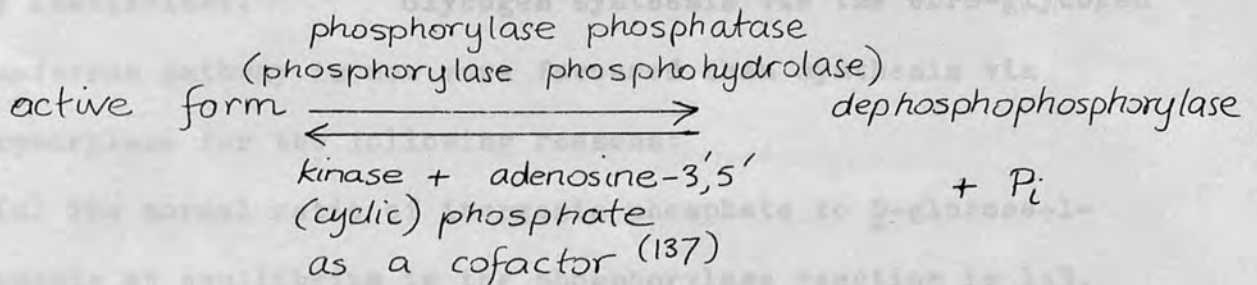 phosphorylase phosphatase
(phosphorylase phosphohydrolase)
active form dephosphophosphorylase
kinase + adenosine-3',5' + Pi
(cyclic) phosphate
as a cofactor (137)